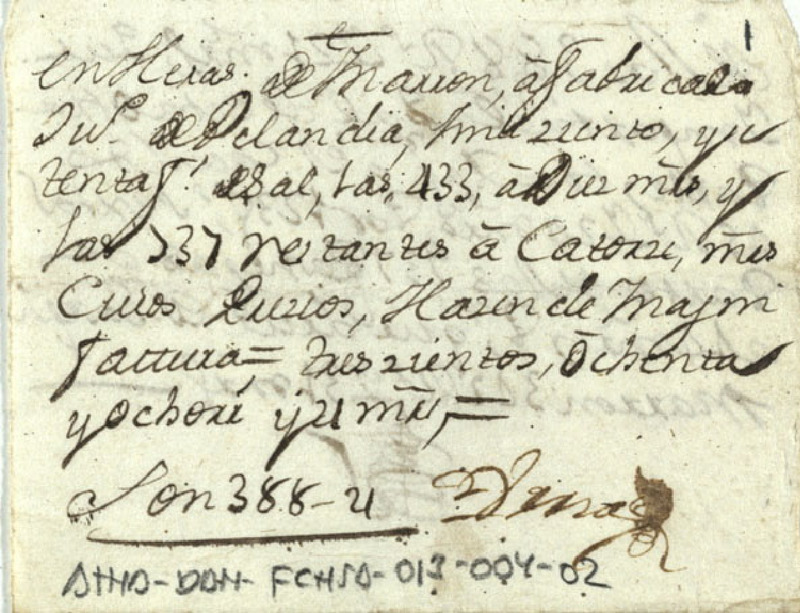 1
en Heras de Marron, â fabricala
Sus.ª de Velandia, mil ziento, y se
tenta f.ˢ de Sal, las, 433, â Diez mrs, y
las 737 restantes â Catorze, mrs
Cuios Prezios, Hazen de Man
factura = treszientos, ôchenta
y ocho rs y 4 mrs, =
Son 388-4
ATHA-DAH-FCHSD-013-004-02